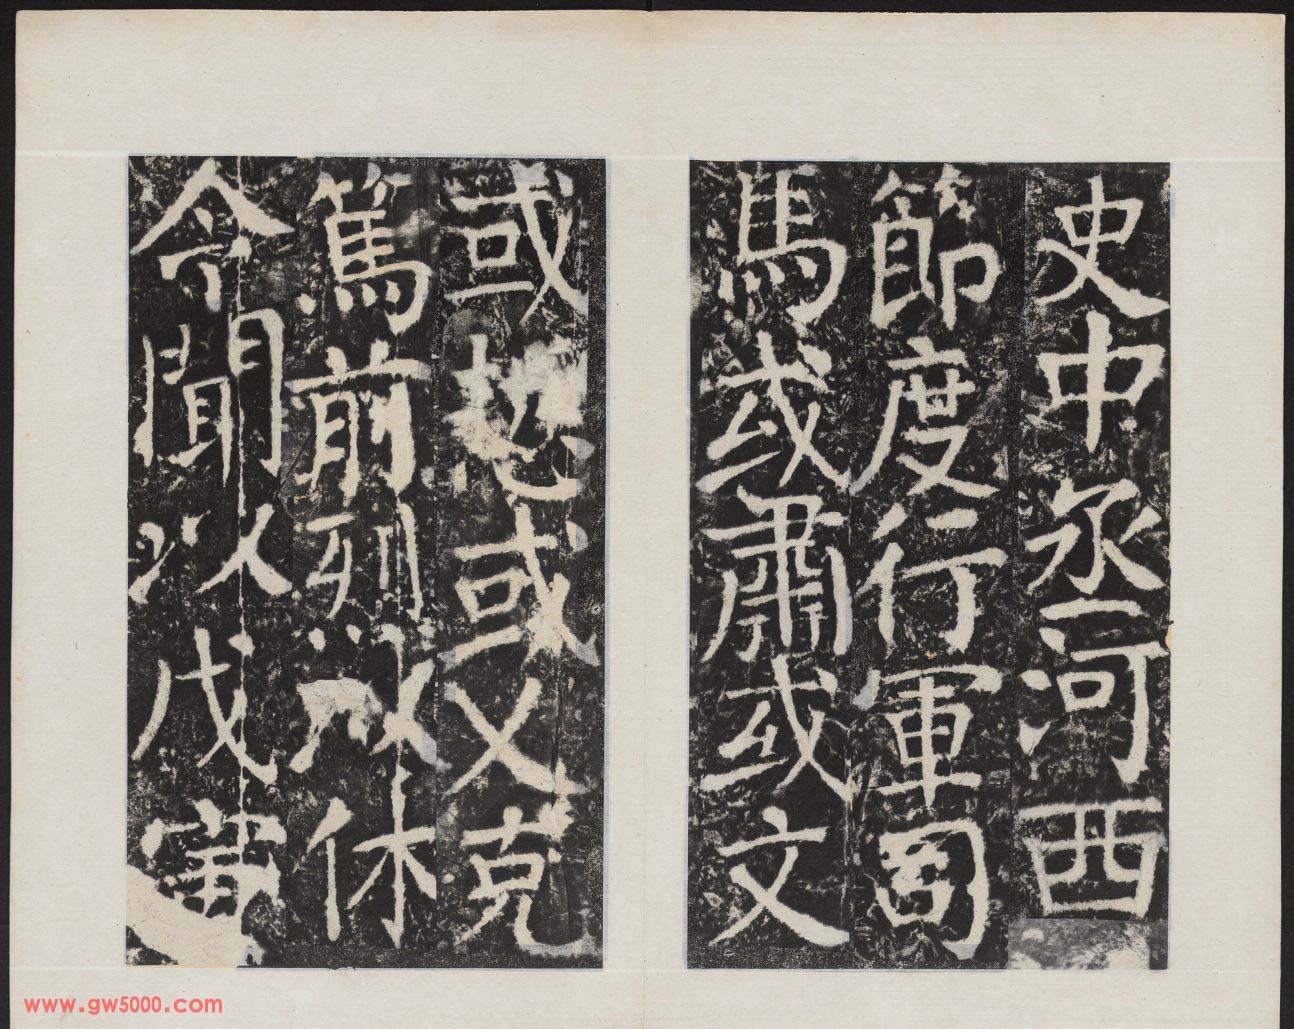 史中丞河西
節度行軍司
馬或肅或文
或或乂克
篤前烈以休
令聞以戊寅
www.gw5000.com